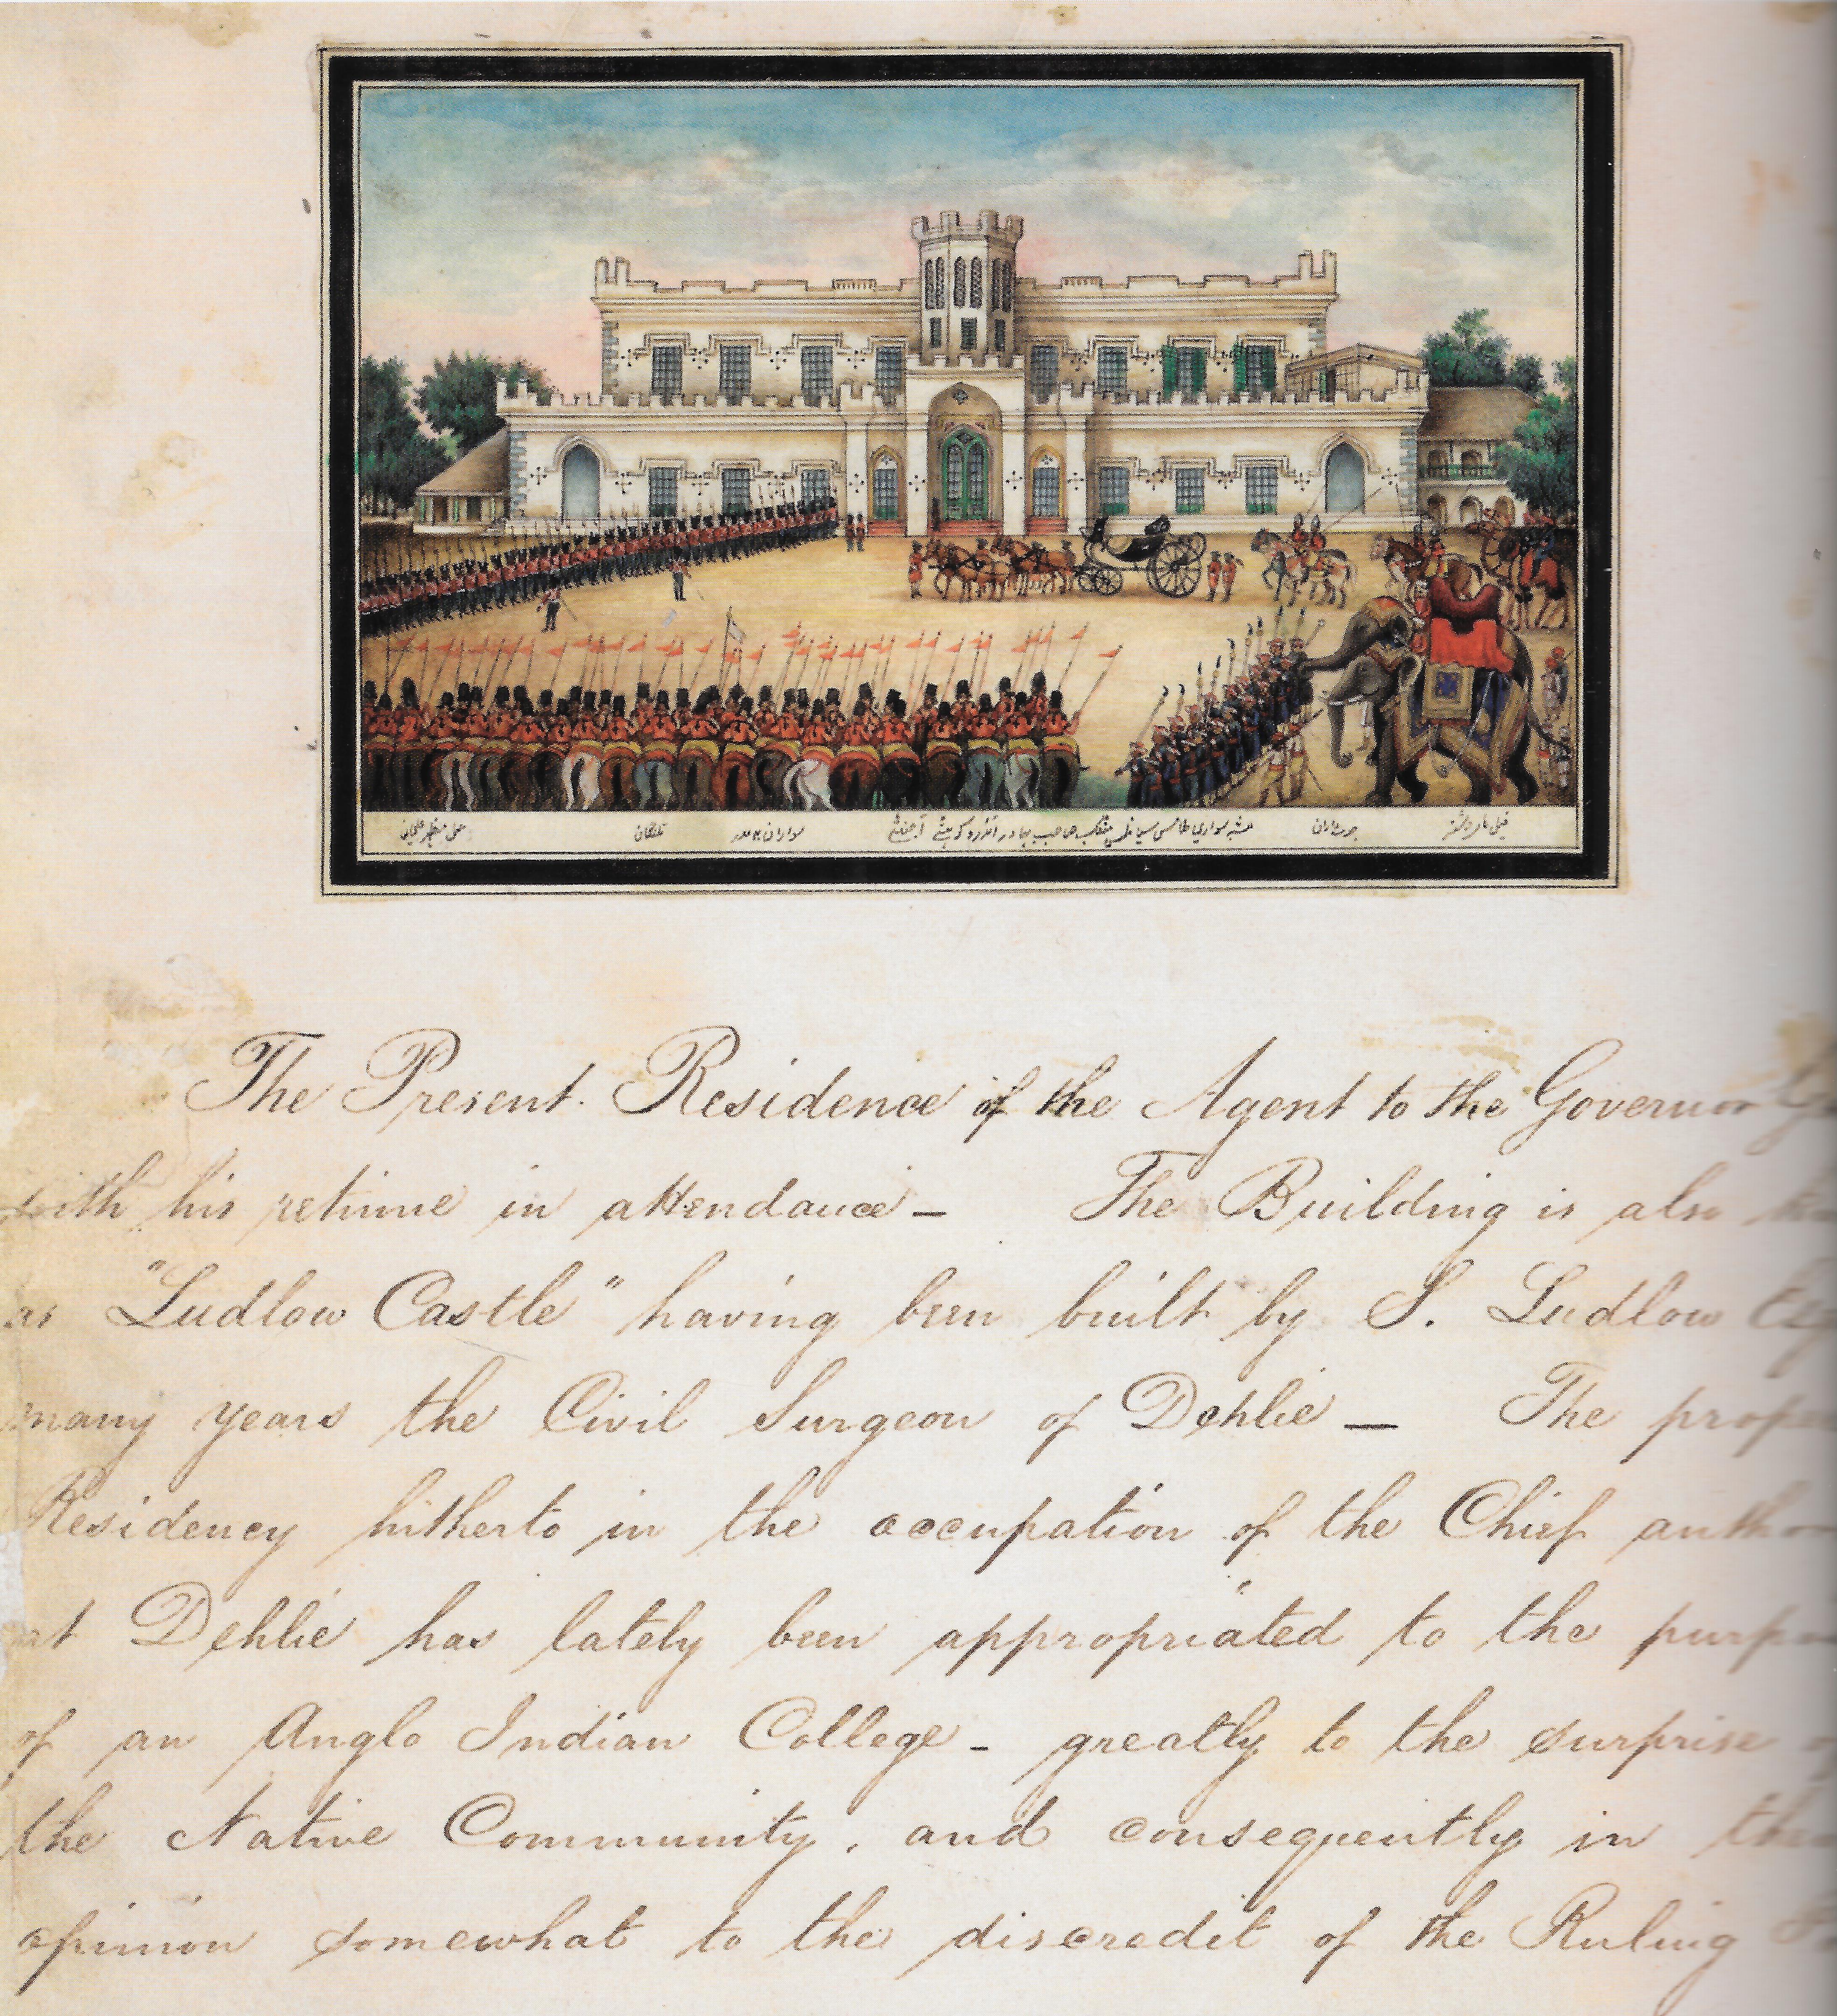 تلنگان
سواران
سواري طامس صاحب بهادر
The Present Residence of the Agent to the Governor
with his retinue in attendance – The Building is also
as "Ludlow Castle" having been built by S. Ludlow Esq
many years the Civil Surgeon of Dehlie – The
Residency hitherto in the occupation of the Chief
at Dehlie has lately been appropriated to the
of an Anglo Indian College – greatly to the surprise
the Native Community, and consequently in
opinion somewhat to the discredit of the Ruling